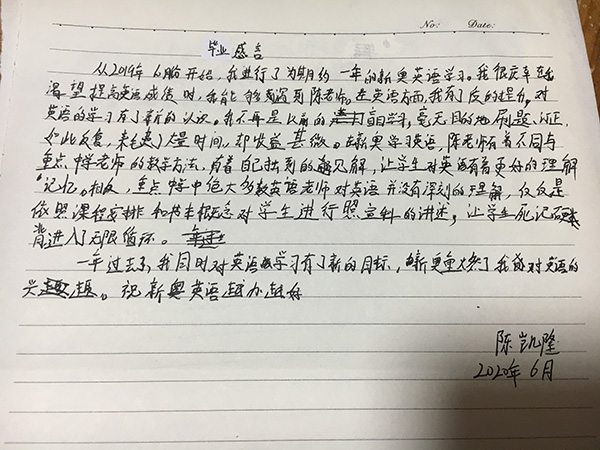 No:  Date:
毕业感言
从2019年6月份开始,我进行了为期约一年的新奥英语学习。我很庆幸在我
渴望提高英语成绩时,我能够遇到陈老师。在英语方面,我有了质的提升。对
英语的学习有了崭新的认识。我不再是以前的盲目学习,毫无目的地刷题、订正,
如此反复,耗费了大量时间,却收益甚微。在新奥学习英语,陈老师有着不同与
重点中学老师的教学方法,有着自己独到的见解,让学生对英语有着更好的理解
记忆。相反,重点中学中绝大多数英语老师对英语并没有深刻的理解,仅仅是
依照课程安排和书本概念对学生进行照宣科的讲述,让学生死记硬
背进入了无限循环。
一年过去了,我同时对英语学习有了新的目标,新奥重燃了我对英语的
兴趣。祝新奥英语越办越好
陈凯隆
2020年6月